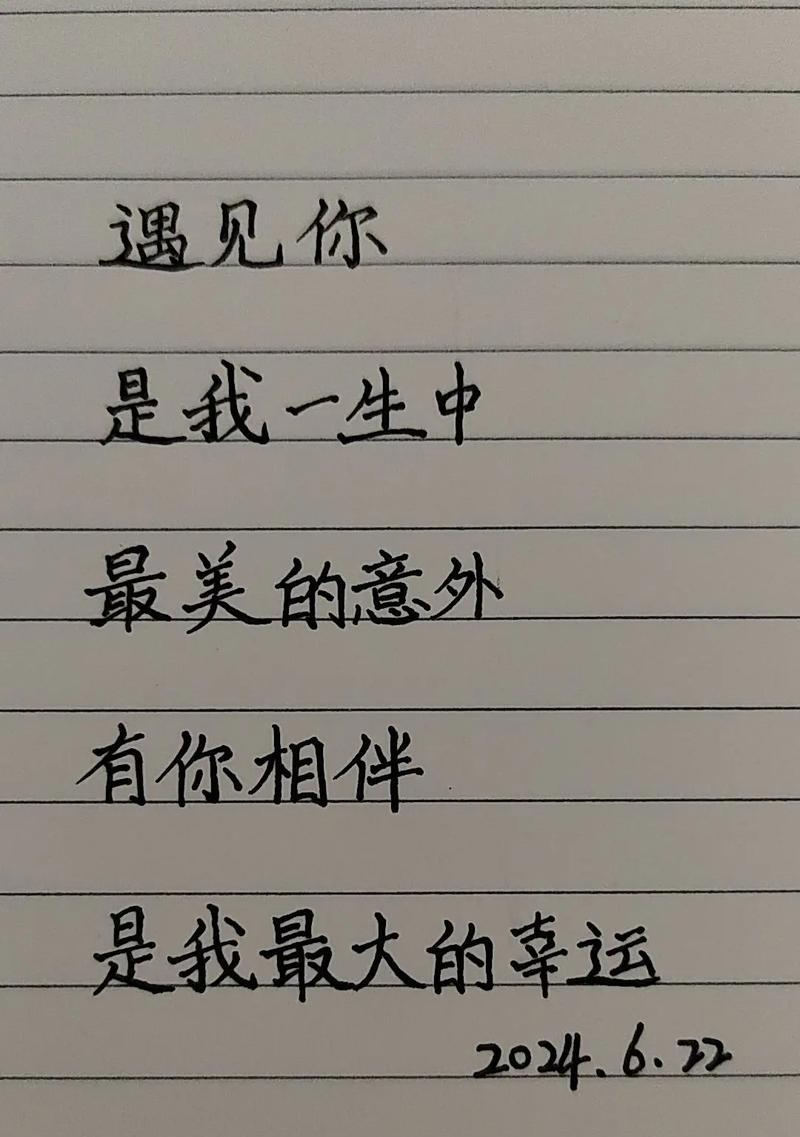 遇见你
是我一生中
最美的意外
有你相伴
是我最大的幸运
2024.6.22